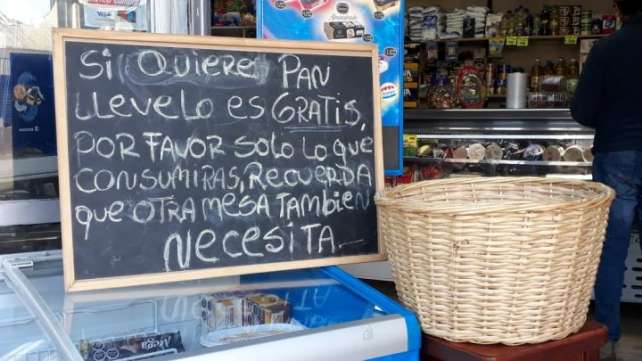 Si QUiERE PAN
LLEVELO ES GRATIS,
POR FAVOR SOLO LO QUE
CONSUMIRAS, RECUERDA
QUE OTRA MESA TAMBIEN
NECESITA